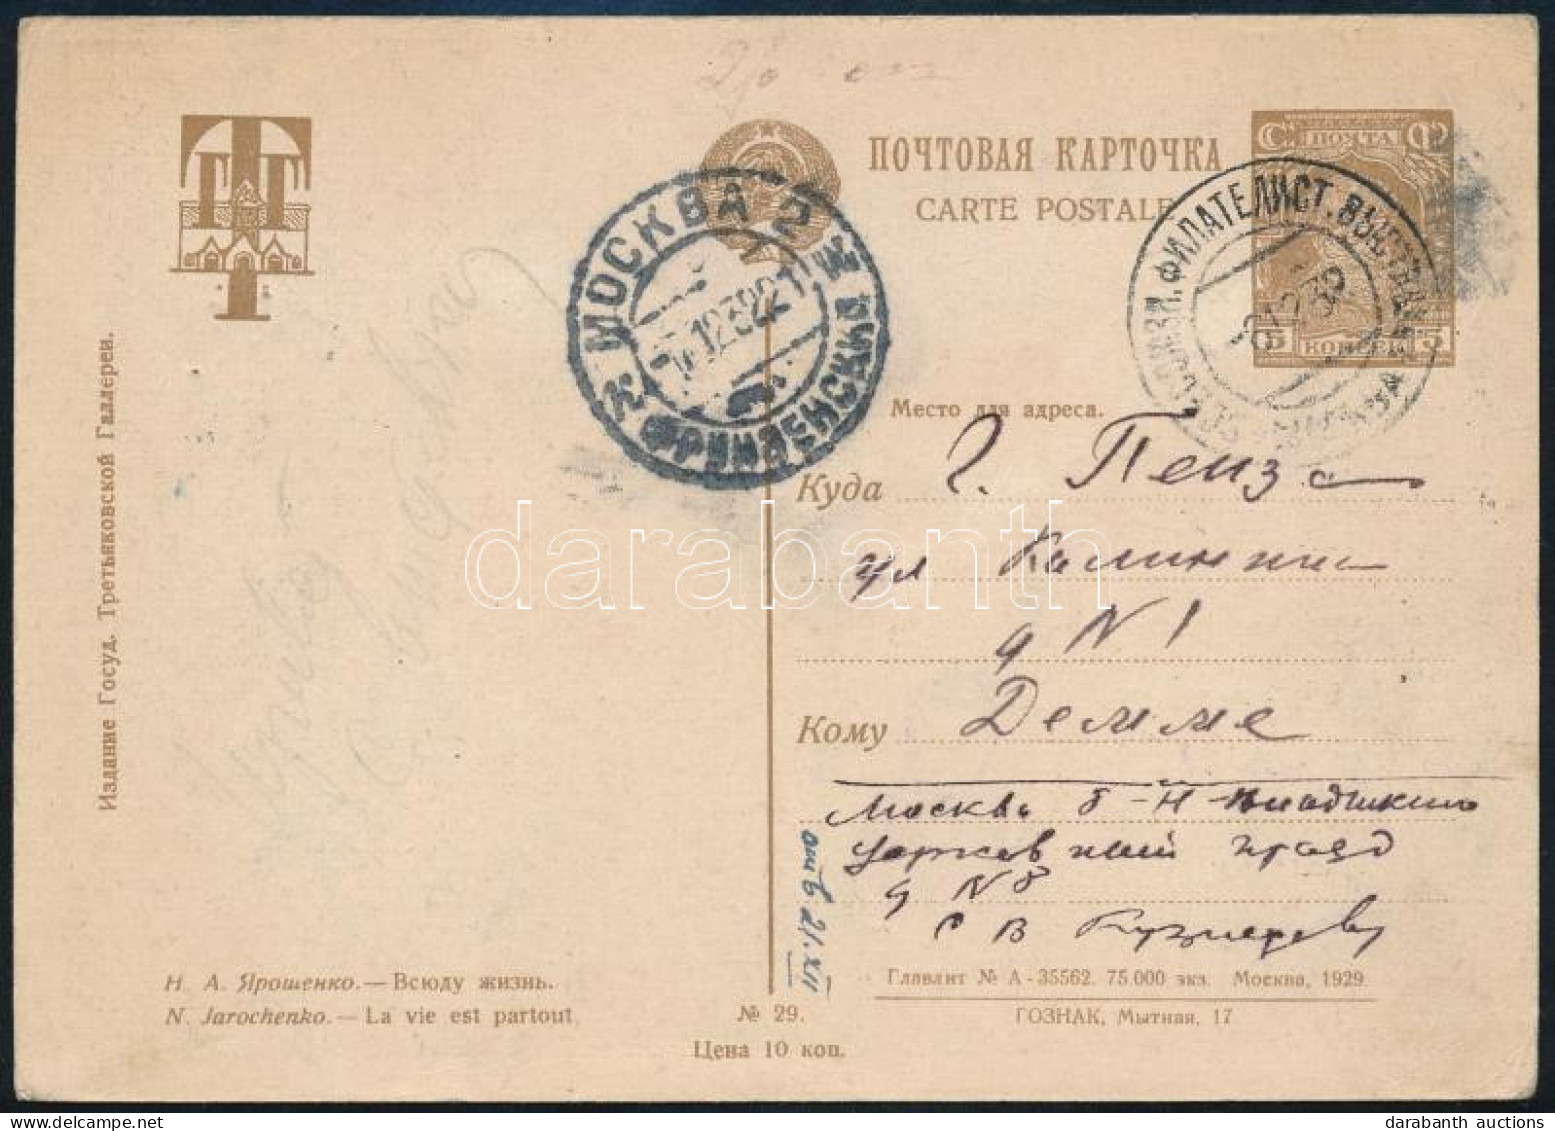 ПОЧТОВАЯ КАРТОЧКА
CARTE POSTALE
С. ПОЧТА Ф.
5 КОПЕЕК 5
МОСКВА 2
ФРУНЗЕНСКИЙ
ФИЛАТЕЛИСТ. ВЫСТАВКА
Место для адреса.
Куда г. Пенза
ул Калинина
д N 1
Кому Демме
Москва
д N 8
С В Кузнецову
отв 21.XII
Издание Госуд. Третьяковской Галлереи.
Н. А. Ярошенко.—Всюду жизнь.
N. Jarochenko.—La vie est partout.
№ 29.
Цена 10 коп.
Главлит № А-35562. 75.000 экз. Москва, 1929.
ГОЗНАК, Мытная, 17
darabanth
darabanth auctions